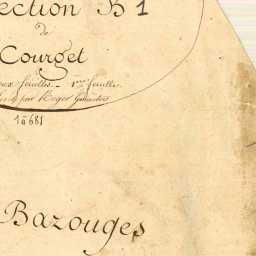 ection B 1
de
Courget
feuilles - 1ère feuille
par Roger Géomètre
1 à 681
Bazouges